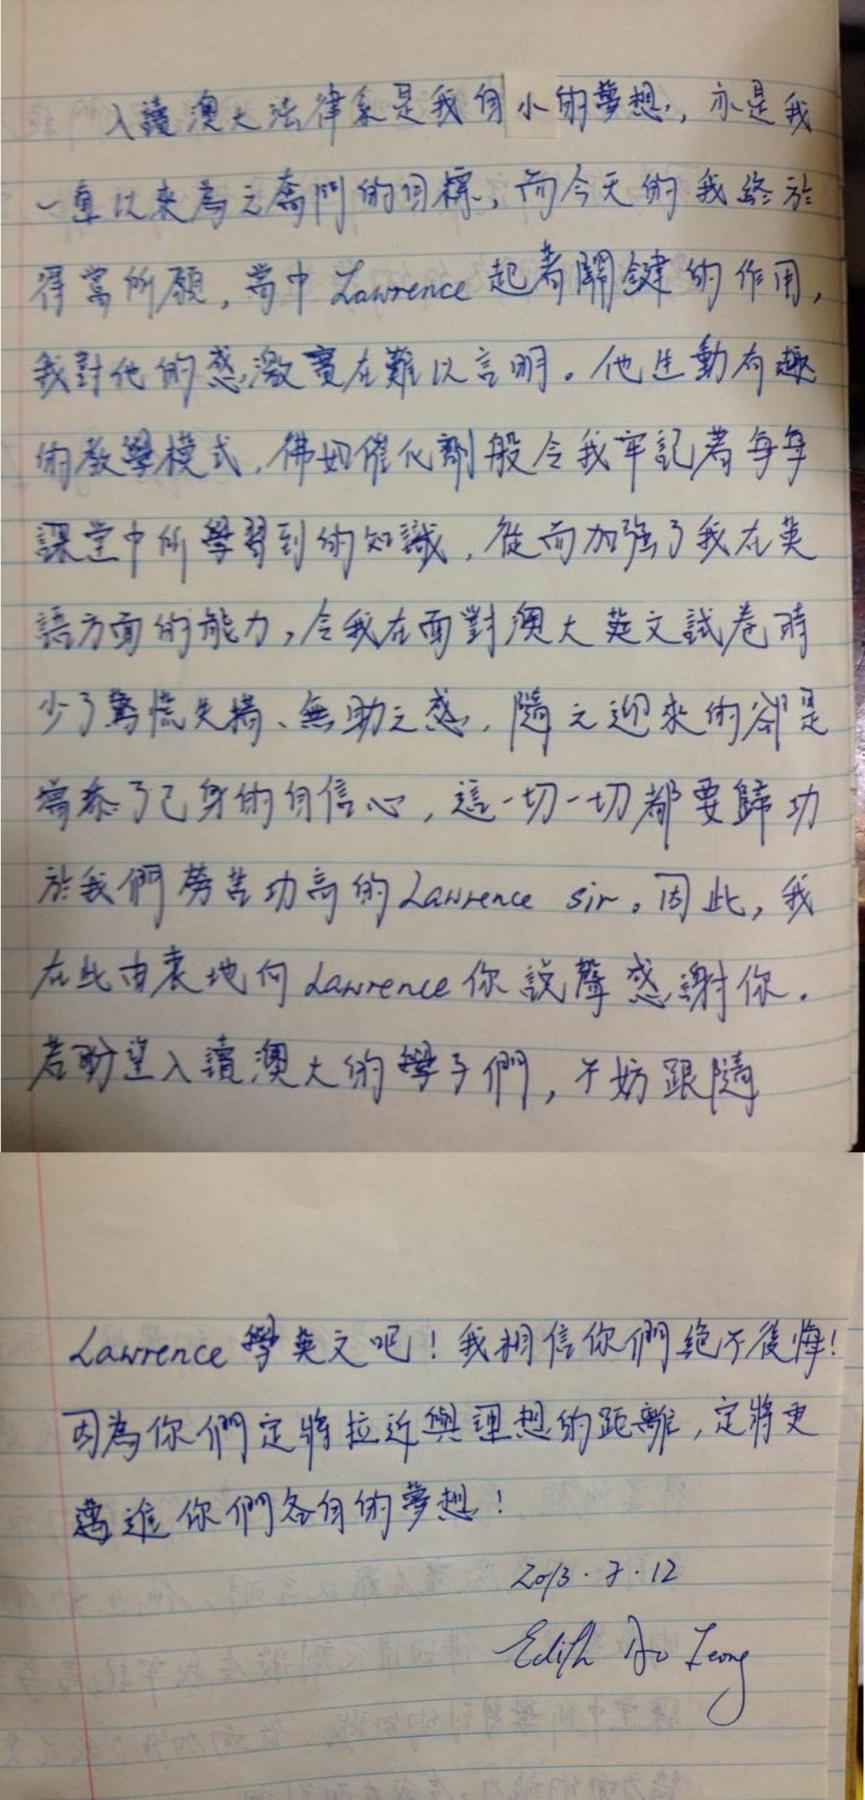 入讀澳大法律系是我自小的夢想，亦是我
一直以來為之奮鬥的目標，而今天的我終於
得嘗所願，當中Lawrence起着關鍵的作用，
我對他的感激實在難以言明。他生動有趣
的教學模式，彿如催化劑般令我牢記着每每
課堂中所學習到的知識，從而加強了我在英
語方面的能力，令我在面對澳大英文試卷時
少了驚慌失措、無助之感，隨之迎來的卻是
增添了己身的自信心，這一切一切都要歸功
於我們勞苦功高的Lawrence sir。因此，我
在此由衷地向Lawrence你說聲感謝你。
若盼望入讀澳大的學子們，不妨跟隨
Lawrence學英文吧！我相信你們絕不後悔！
因為你們定將拉近與理想的距離，定將更
邁進你們各自的夢想！
2013.7.12
Edith Ao Ieong